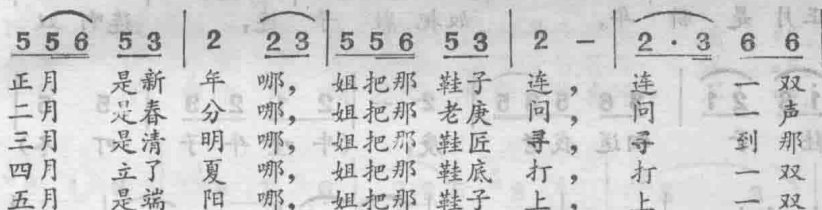 5 5 6 5 3 | 2 2 3 | 5 5 6 5 3 | 2 – | 2 · 3 6 6
正月 是新 年 哪, 姐把那 鞋子 连, 连 一 双
二月 是春 分 哪, 姐把那 老庚 问, 问 一 声
三月 是清 明 哪, 姐把那 鞋匠 寻, 寻 到 那
四月 立了 夏 哪, 姐把那 鞋底 打, 打 一 双
五月 是端 阳 哪, 姐把那 鞋子 上, 上 一 双